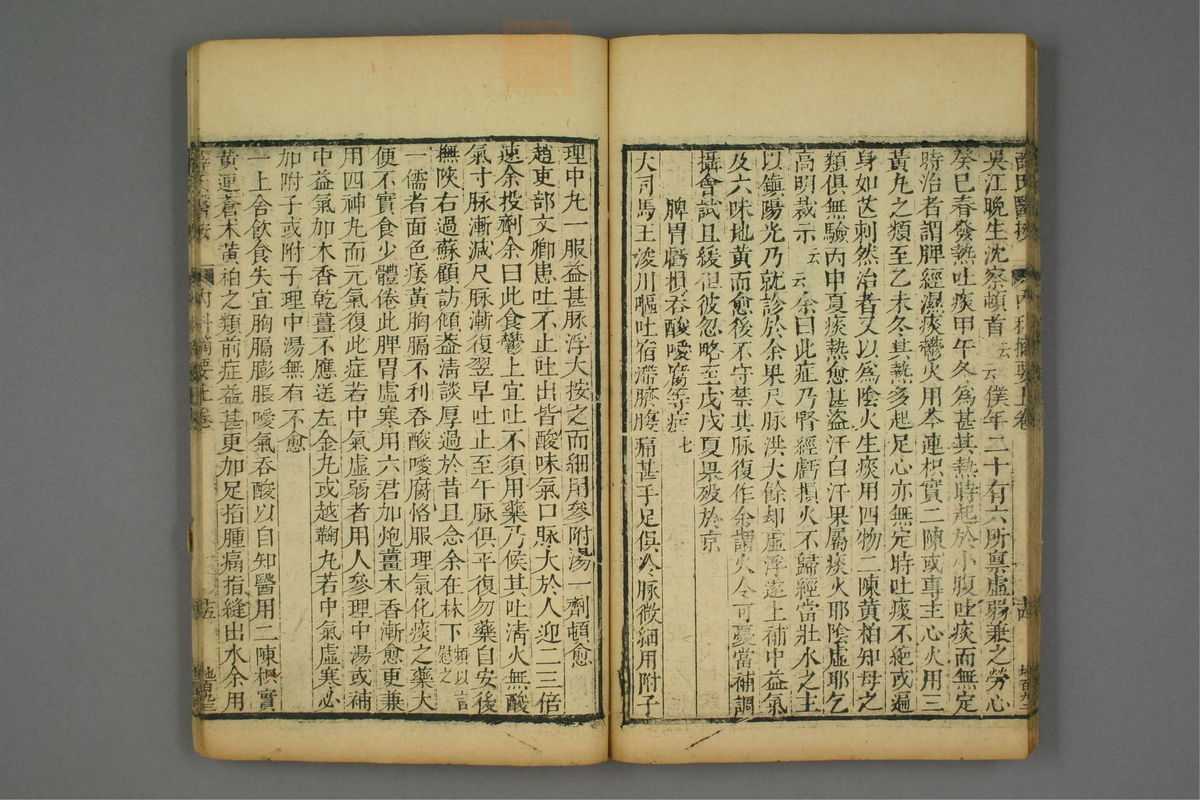 吳江晚生沈察頓首云云僕年二十有六所稟虛弱兼之勞心
癸巳春發熱吐痰甲午冬為甚其熱時起於小腹吐痰而無定
時治者謂脾經濕痰鬱火用芩連枳實二陳或專主心火用三
黃丸之類至乙未冬其熱多起足心亦無定時吐痰不絕或遍
身如芒刺然治者又以為陰火生痰用四物二陳黃柏知母之
類俱無驗丙申夏痰熱愈甚盜汗自汗果屬痰火耶陰虛耶乞
高明裁示云云余曰此症乃腎經虧損火不歸經當壯水之主
以鎮陽光乃就診於余果尺脉洪大餘却虛浮遂上補中益氣
及六味地黃而愈後不守禁其脉復作余謂火令可憂當補調
攝會試且緩但彼忽略至戊戌夏果歿於京
脾胃虧損吞酸噯腐等症七
大司馬王浚川嘔吐宿滯臍腹痛甚手足俱冷脉微細用附子
理中丸一服益甚脉浮大按之而細用參附湯一劑頓愈
趙吏部文卿患吐不止吐出皆酸味氣口脉大於人迎二三倍
速余投劑余曰此食鬱上宜吐不須用藥乃候其吐清火無酸
氣寸脉漸減尺脉漸復翌早吐止至午脉俱平復勿藥自安後
撫陝右過蘇顧訪傾蓋清談厚過於昔且念余在林下頻以言慰之
一儒者面色痿黃胸膈不利吞酸噯腐恪服理氣化痰之藥大
便不實食少體倦此脾胃虛寒用六君加炮薑木香漸愈更兼
用四神丸而元氣復此症若中氣虛弱者用人參理中湯或補
中益氣加木香乾薑不應送左金丸或越鞠丸若中氣虛寒必
加附子或附子理中湯無有不愈
一上舍飲食失宜胸膈膨脹噯氣吞酸以自知醫用二陳枳實
黃連蒼朮黃柏之類前症益甚更加足指腫痛指縫出水余用